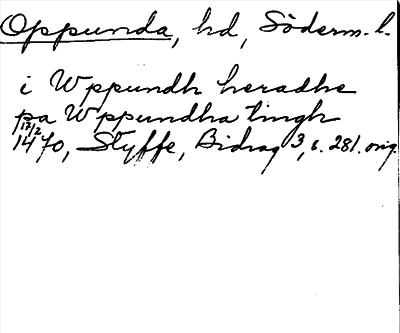 Oppunda, hd, Söderm. l.
i Wppundh heradhe
pa Wppundha tingh
13/2
1470, Styffe, Bidrag 3, s. 281. orig.